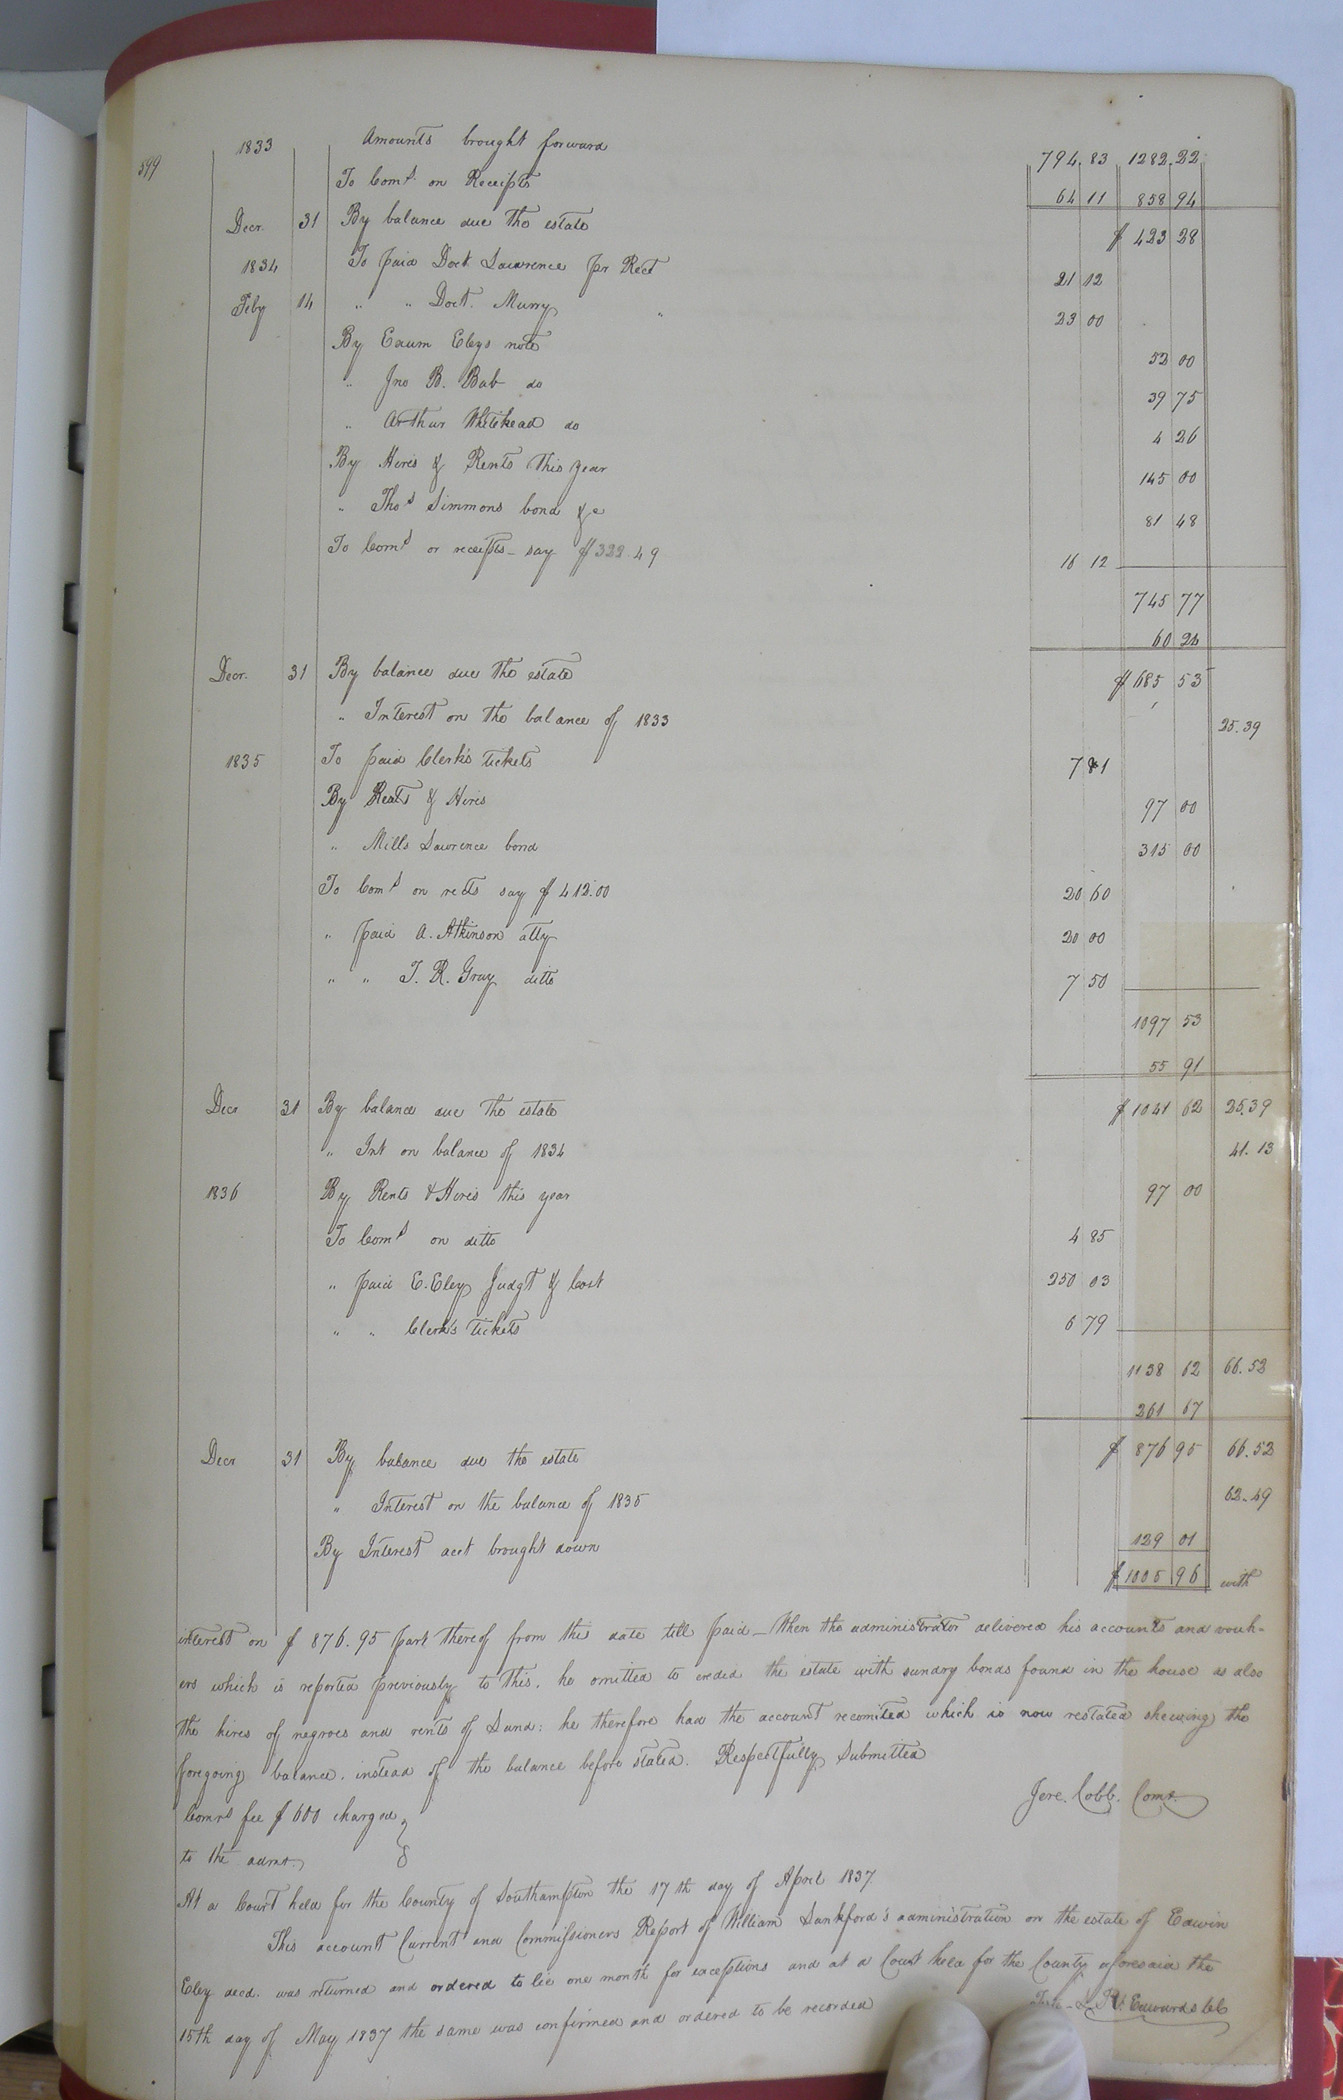 599
1833 Amounts brought forward 794.83 1282.22
To Comṣ. on Receipts 64 11 858 94
Decr. 31 By balance due the estate $ 423 28
1834 To paid Doct. Lawrence pr Rect 21 12
Feby 14 " " Doct. Murry 23 00
By Exum Eleys note 52 00
" Jno B. Bab do 39 75
" Arthur Whitehead do 4 26
By Hires & Rents this year 145 00
" Thos Simmons bond &c 81 48
To Coms or receipts - say $ 322.49 16 12
745 77
60 24
Decr. 31 By balance due the estate $ 685 53
" Interest on the balance of 1833 25.39
1835 To paid Clerk's tickets 7 81
By Rents & Hires 97 00
" Mills Lawrence bond 315 00
To Coms on rects say $ 412.00 20 60
" paid A. Atkinson atty 20 00
" " T. R. Gray ditto 7 50
1097 53
55 91
Decr 31 By balance due the estate $ 1041 62 25.39
" Int on balance of 1834 41.13
1836 By Rents & Hires this year 97 00
To Coms on ditto 4 85
" paid E. Eley Judgt & Cost 250 03
" " Clerk's tickets 6 79
1138 62 66.52
261 67
Decr 31 By balance due the estate $ 876 95 66.52
" Interest on the balance of 1835 62.49
By Interest acct brought down 129 01
$ 1005 96 with
interest on $ 876.95 part thereof from this date till paid - When the administrator delivered his accounts and vouch-
ers which is reported previously to this, he omitted to credid the estate with sundry bonds found in the house as also
the hires of negroes and rents of Land: he therefore had the account recomited which is now restated shewing the
foregoing balance. instead of the balance before stated. Respectfully Submitted
Jere. Cobb. Comr.
Comrs fee $ 600 charged
to the admr.
At a Court held for the County of Southampton the 17th day of April 1837
This account Current and Commissioners Report of William Lankford's administration on the estate of Edwin
Eley decd. was returned and ordered to lie one month for exceptions and at a Court held for the County aforesaid the
15th day of May 1837 the same was confirmed and ordered to be recorded
Teste - L. R. Edwards Clk